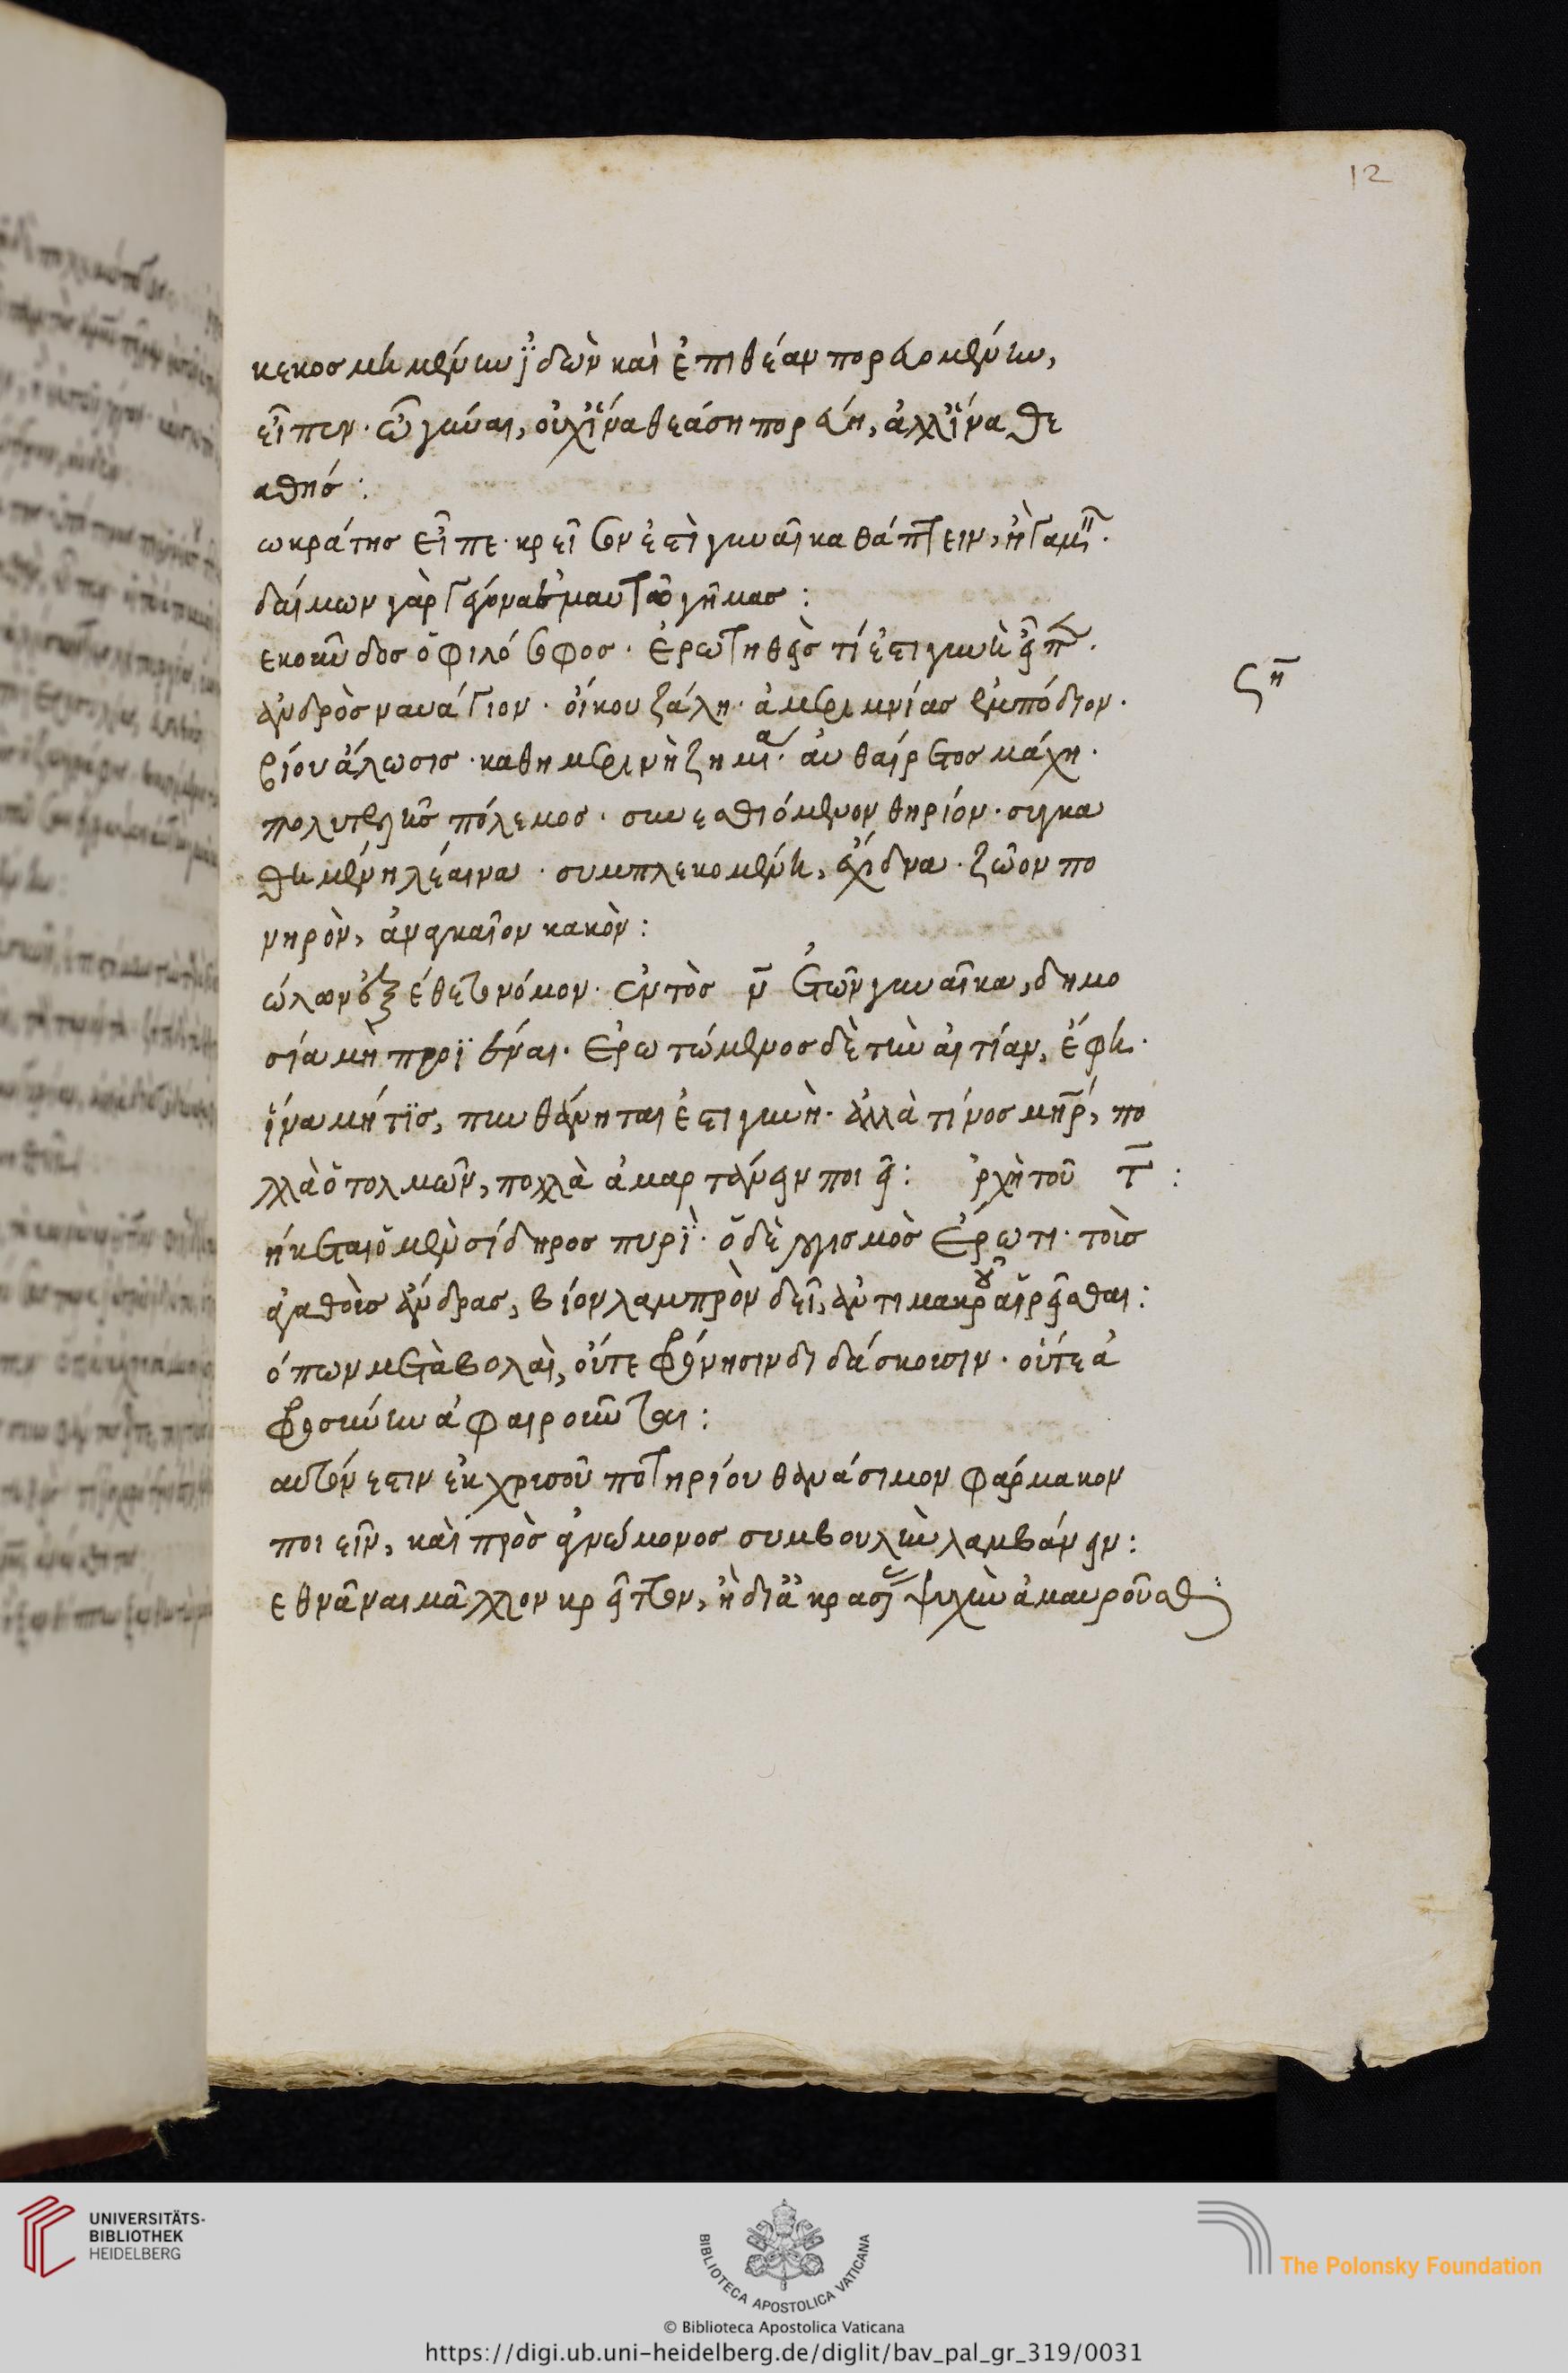 12
κεκοσμημένην ἰδὼν καὶ ἐπιθέαν πορευομένην,
εἶπεν· ὦ γύναι, οὐχ ἵνα θεάσῃ πορεύῃ, ἀλλ' ἵνα θε
αθῆς:
ωκράτης εἶπε· κρεῖσσον ἐστὶ γυναῖκα θάπτειν, ἢ γαμεῖν·
δαίμων γὰρ γέγονα ἐμαυτῶ γήμας:
εκοῦνδος ὁ φιλόσοφος· ἐρωτηθεὶς τί ἐστι γυνὴ εἶπ·
ἀνδρὸς ναυάγιον· οἴκου ζάλη· ἀμεριμνίας ἐμπόδιον·
ϛη
βίου ἅλωσις· καθημερινὴ ζημία· αὐθαίρετος μάχη·
πολυτελὴς πόλεμος· συνεσθιόμενον θηρίον· συγκα
θημένη λέαινα· συμπλεκομένη, ἔχιδνα· ζῶον πο
νηρὸν, ἀναγκαῖον κακὸν:
όλων ἐξέθετο νόμον· ἐντὸς ν ἐτῶν γυναῖκα, δημο
σία μὴ προϊέναι· ἐρωτώμενος δὲ τὴν αἰτίαν, ἔφη·
ἵνα μήτις, πυνθάνηται ἐστι γυνὴ· ἀλλὰ τίνος μηρ, πο
λλὰ ὁ τολμῶν, πολλὰ ἁμαρτάνειν ποιεῖ: ἀρχὴ τοῦ τ:
ήκεται ὁ μὲν σίδηρος πυρὶ· ὁ δὲ λογισμὸς ἔρωτι· τοὺς
ἀγαθοὺς ἄνδρας, βίον λαμπρὸν δεῖ, ἀντὶ μακροῦ αἱρεῖσθαι:
όπων μεταβολαὶ, οὔτε φρόνησιν διδάσκουσιν· οὔτε ἀ
φροσύνην ἀφαιροῦνται:
αυτόν ἐστιν ἐκ χρυσοῦ ποτηρίου θανάσιμον φάρμακον
ποιεῖν, καὶ πρὸς ἀγνώμονος συμβουλὴν λαμβάνειν:
εθνᾶναι μᾶλλον κρεῖττον, ἢ δι' ἀκρασίας ψυχὴν ἀμαυροῦσθ:
UNIVERSITÄTS-
BIBLIOTHEK
HEIDELBERG
BIBLIOTECA APOSTOLICA VATICANA
The Polonsky Foundation
© Biblioteca Apostolica Vaticana
https://digi.ub.uni-heidelberg.de/diglit/bav_pal_gr_319/0031